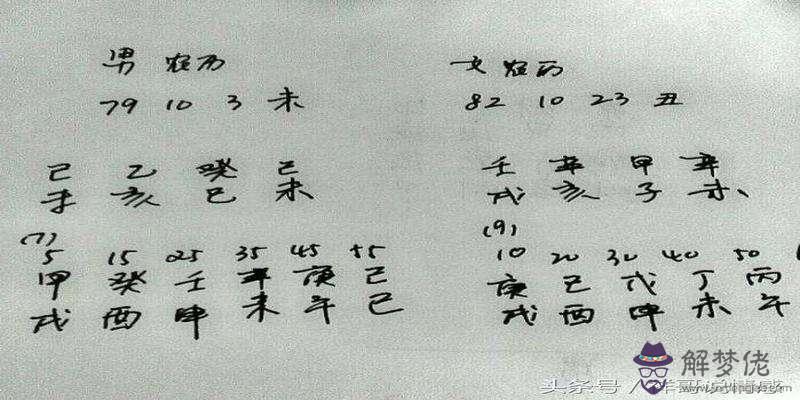 男 农历
79 10 3 未
己 乙 癸 己
未 亥 巳 未
(7)
5 15 25 35 45 55
甲 癸 壬 辛 庚 己
戌 酉 申 未 午 巳
女 农历
82 10 23 丑
壬 辛 甲 辛
戌 亥 子 未、
(9)
10 20 30 40 50
庚 己 戊 丁 丙
戌 酉 申 未 午
头条号 /
解梦佬